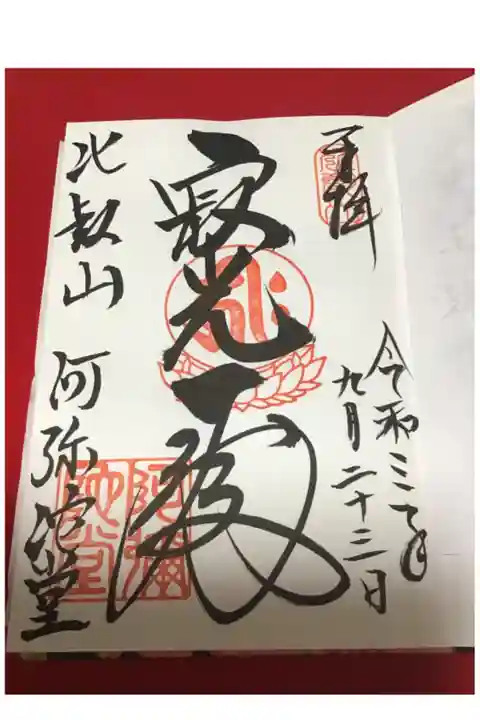 奉拝
令和三年
九月二十三日
寂光殿
比叡山 阿弥陀堂
阿彌陀堂